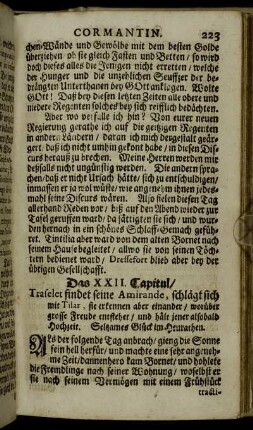 CORMANTIN. 223
chen/Wände und Gewölbe mit dem besten Golde
überziehen ob sie gleich Fasten und Betten / so wird
doch dieses alles die Jenigen nicht erretten / welche
der Hunger und die unzehlichen Seuffzer der be-
drängten Unterthanen bey GOtt anklagen. Wolte
GOtt! Daß bey diesen letzten Zeiten alle obere und
niedere Regenten solches bey sich reifflich bedächten.
Aber wo verfalle ich hin? Von eurer neuen
Regierung gerathe ich auf die geitzigen Regenten
in andern Ländern / daran ich mich dergestalt geär-
gert / daß ich nicht umhin gekont habe / in diesen Dis-
curs heraus zu brechen. Meine Herren werden mir
deßfalls nicht ungünstig werden. Die andern spra-
chen / daß er nicht Ursach hätte / sich zu entschuldigen /
inmassen er ja wol wüste / wie angenehm ihnen jedes-
mahl seine Discurs wären. Also fielen diesen Tag
allerhand Reden vor / biß auf den Abend wieder zur
Tafel geruffen ward / da jätzigten sie sich / und wur-
den hernach in ein schönes Schlaff-Gemach gefüh-
ret. Tintilia aber ward von dem alten Bornet nach
seinem Hause begleitet / allwo sie von seinen Töch-
tern bedienet ward / Dreliefort blieb aber bey der
übrigen Gesellschafft.
Das XXII. Capitul /
Traselet findet seine Amirande, schlägt sich
mit Tilar, sie erkennen aber einander / worüber
grosse Freude entstehet / und hält jener alsobald
Hochzeit. Seltzames Glück im Heurathen.
Als der folgende Tag anbrach / gieng die Sonne
fein hell herfür / und machte eine sehr angeneh-
me Zeit / dannenhero kam Bornet / und hohlete
die Fremdlinge nach seiner Wohnung / woselbst er
sie nach seinem Vermögen mit einem Frühstück
tracti-